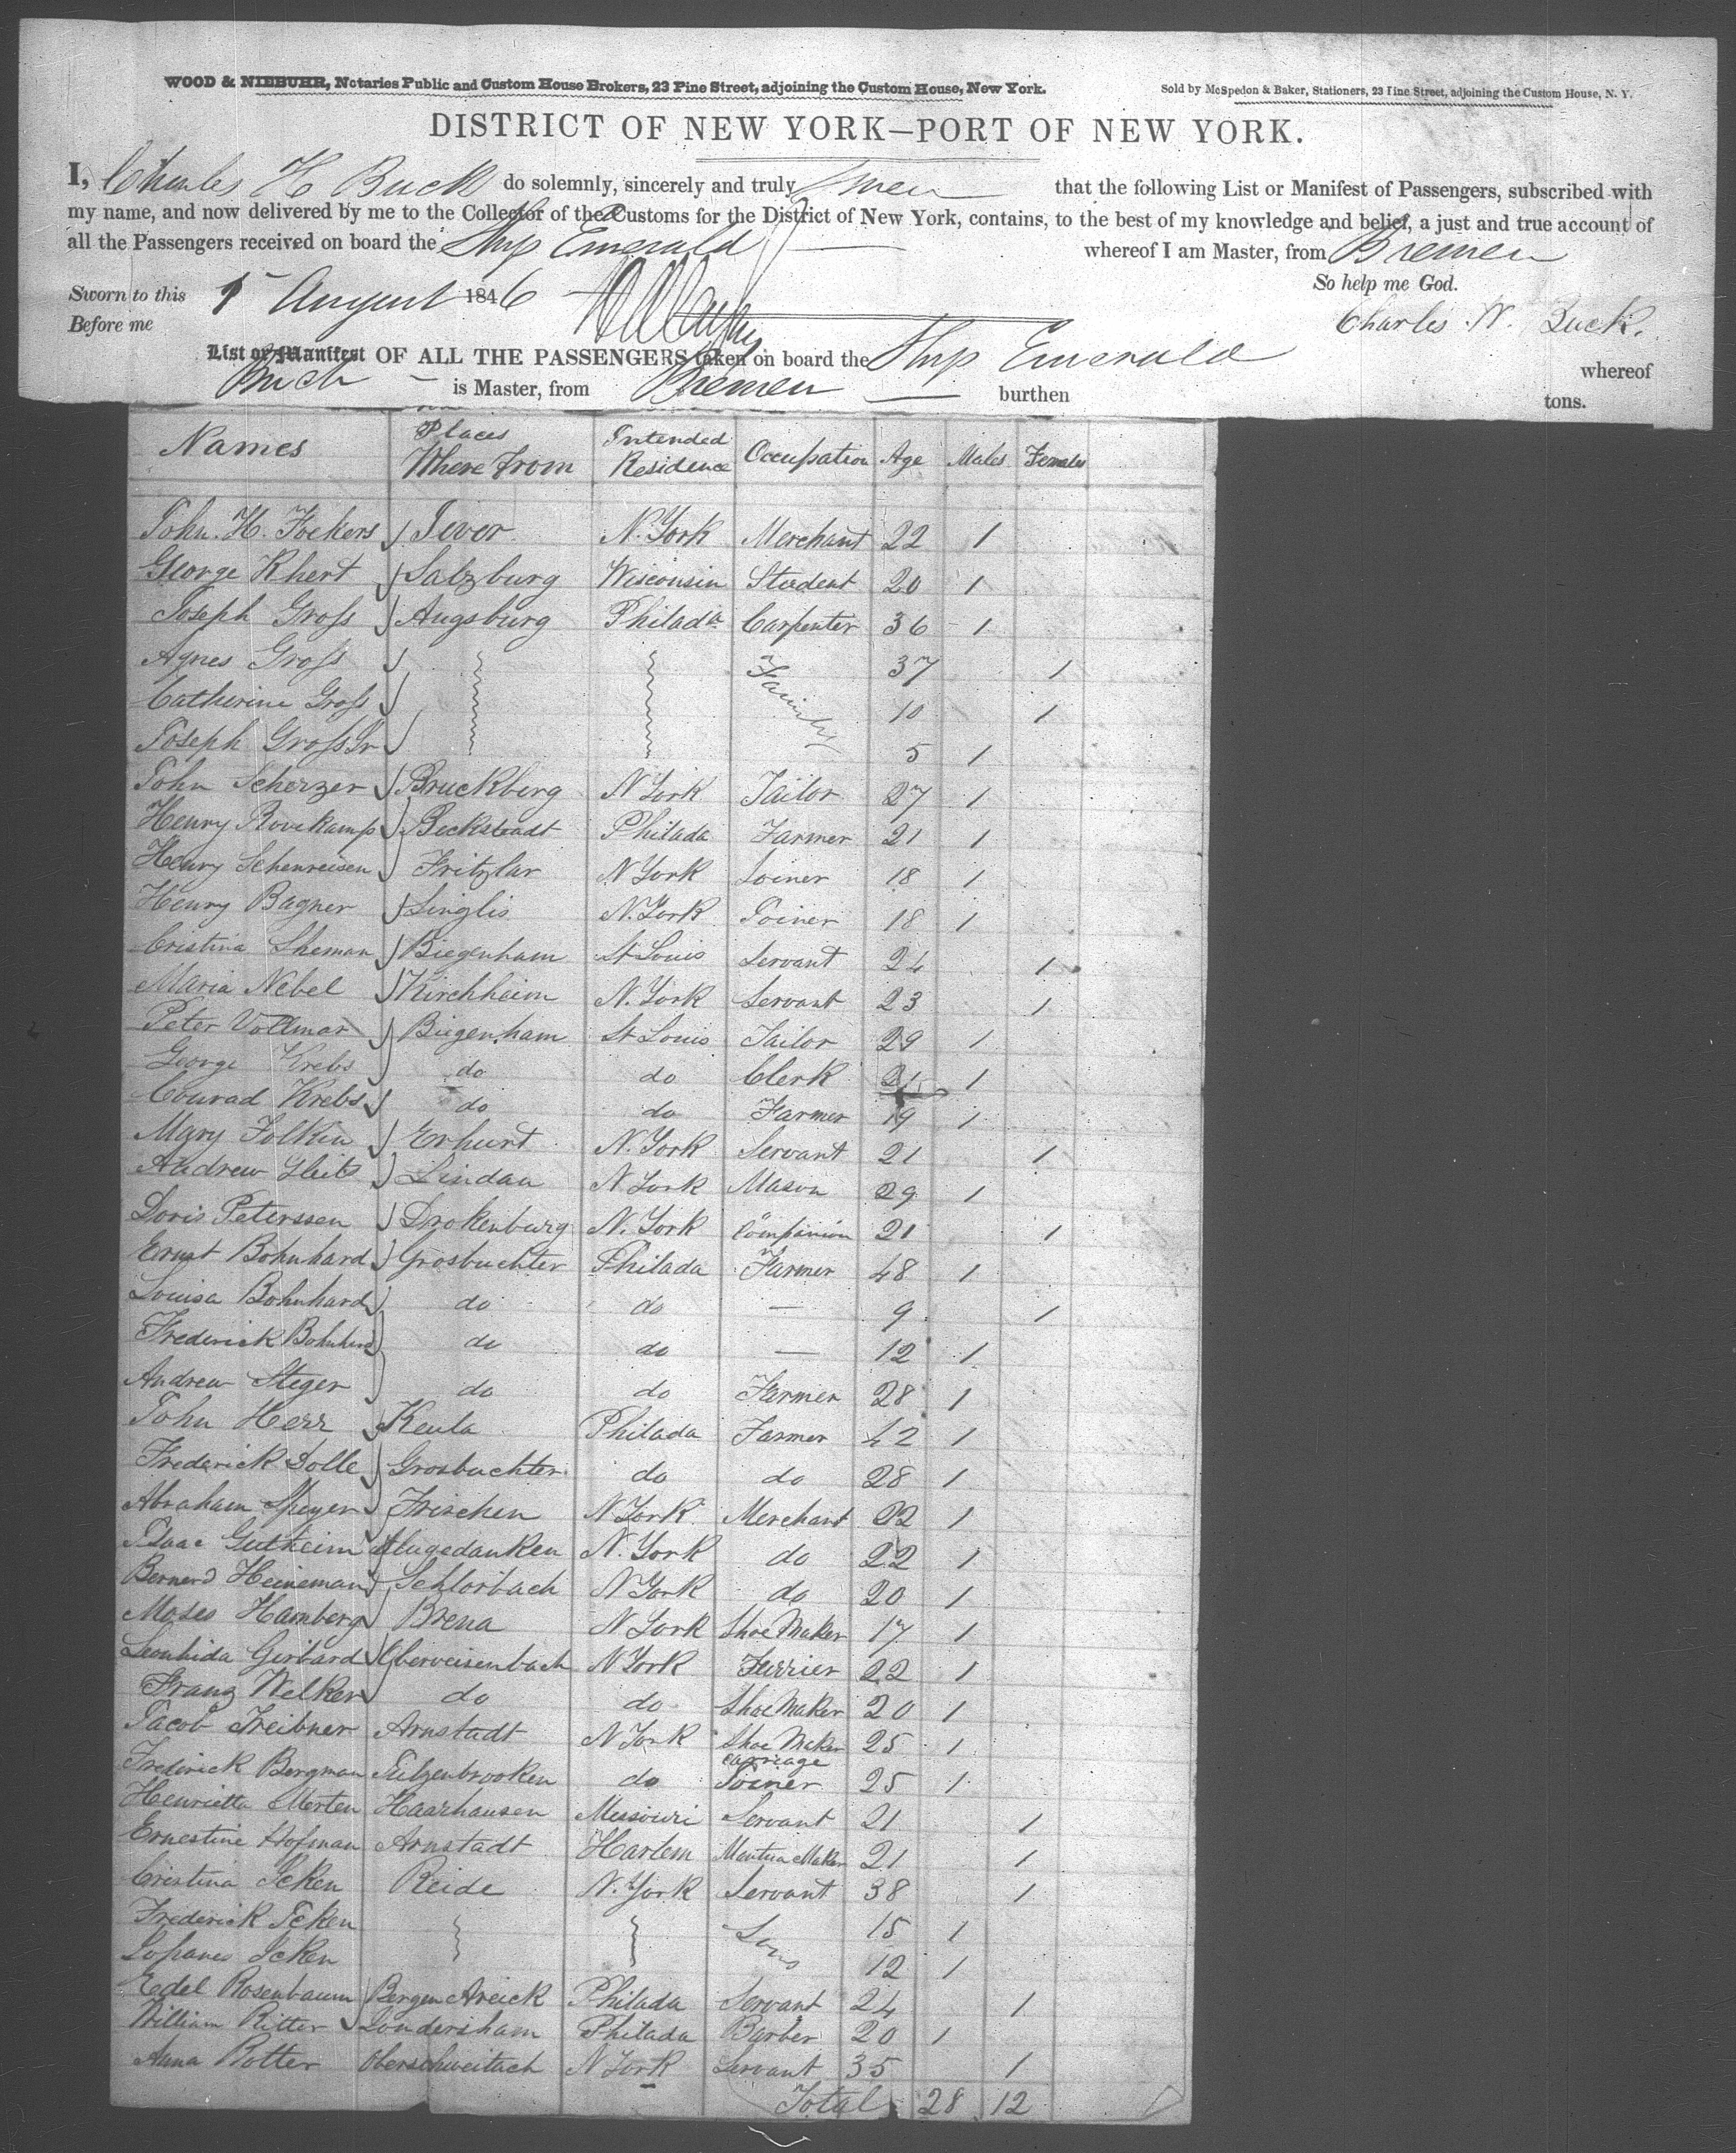 WOOD & NIEBUHR, Notaries Public and Custom House Brokers, 23 Pine Street, adjoining the Custom House, New York.
Sold by McSpedon & Baker, Stationers, 23 Pine Street, adjoining the Custom House, N. Y.
DISTRICT OF NEW YORK—PORT OF NEW YORK.
I, Charles H Buck do solemnly, sincerely and truly swear that the following List or Manifest of Passengers, subscribed with
my name, and now delivered by me to the Collector of the Customs for the District of New York, contains, to the best of my knowledge and belief, a just and true account of
all the Passengers received on board the Ship Emerald whereof I am Master, from Bremen
So help me God.
Sworn to this 1 August 1846
Charles W. Buck.
Before me
List or Manifest OF ALL THE PASSENGERS taken on board the Ship Emerald whereof
Buck is Master, from Bremen burthen tons.
Names Places Where from Intended Residence Occupation Age Males Females
John. H. Fockers Jever N. York Merchant 22 1
George Khert Salzburg Wisconsin Student 20 1
Joseph Groſs Augsburg Philada Carpenter 36 1
Agnes Groſs Family 37 1
Catherine Groſs 10 1
Joseph Groſs Jr 5 1
John Scherzer Bruckberg N York Tailor 27 1
Henry Rovekamp Beckstadt Philada Farmer 21 1
Henry Schenreisen Fritzlar N York Joiner 18 1
Henry Bagner Singlis N. York Joiner 18 1
Cristina Sheman Biegenham St Louis Servant 24 1
Maria Nebel Kirchheim N. York Servant 23 1
Peter Vollmar Biegenham St Louis Tailor 29 1
George Krebs do do Clerk 21 1
Conrad Krebs do do Farmer 19 1
Mary Folkin Erhurt N. York Servant 21 1
Andrew Lindau N York Mason 29 1
Doris Peterssen Drokenburg N. York Companion 21 1
Ernst Bohnhard Grosbuchter Philada Farmer 48 1
Louisa Bohnhard do do — 9 1
Frederick Bohnhard do do — 12 1
Andrew Steger do do Farmer 28 1
John Herr Keula Philada Farmer 42 1
Frederick Dolle Grosbuchter do do 28 1
Abraham Speyer Frischen N York Merchant 22 1
Isaac Gutheim N. York do 22 1
Bernerd Heineman Schlorbach N York do 20 1
Moses Hamberg Brena N York Shoe Maker 17 1
Leonhida Girbard Oberveisenbach N York Furrier 22 1
Franz Welker do do Shoe Maker 20 1
Jacob Treibner Arnstadt N York Shoe Maker 25 1
Frederick Bergman Sulzenbrooken do carriage Joiner 25 1
Henrietta Merten Haarhausen Messouri Servant 21 1
Ernestine Hofman Arnstadt Harlem Mantua Maker 21 1
Cristina Icken Reide N. York Servant 38 1
Frederick Icken Sons 15 1
Icken 12 1
Edel Rosenbaum Bergen Philada Servant 24 1
William Ritter Londersham Philada Barber 20 1
Anna Rotter Oberschweitach N York Servant 35 1
Total 28 12